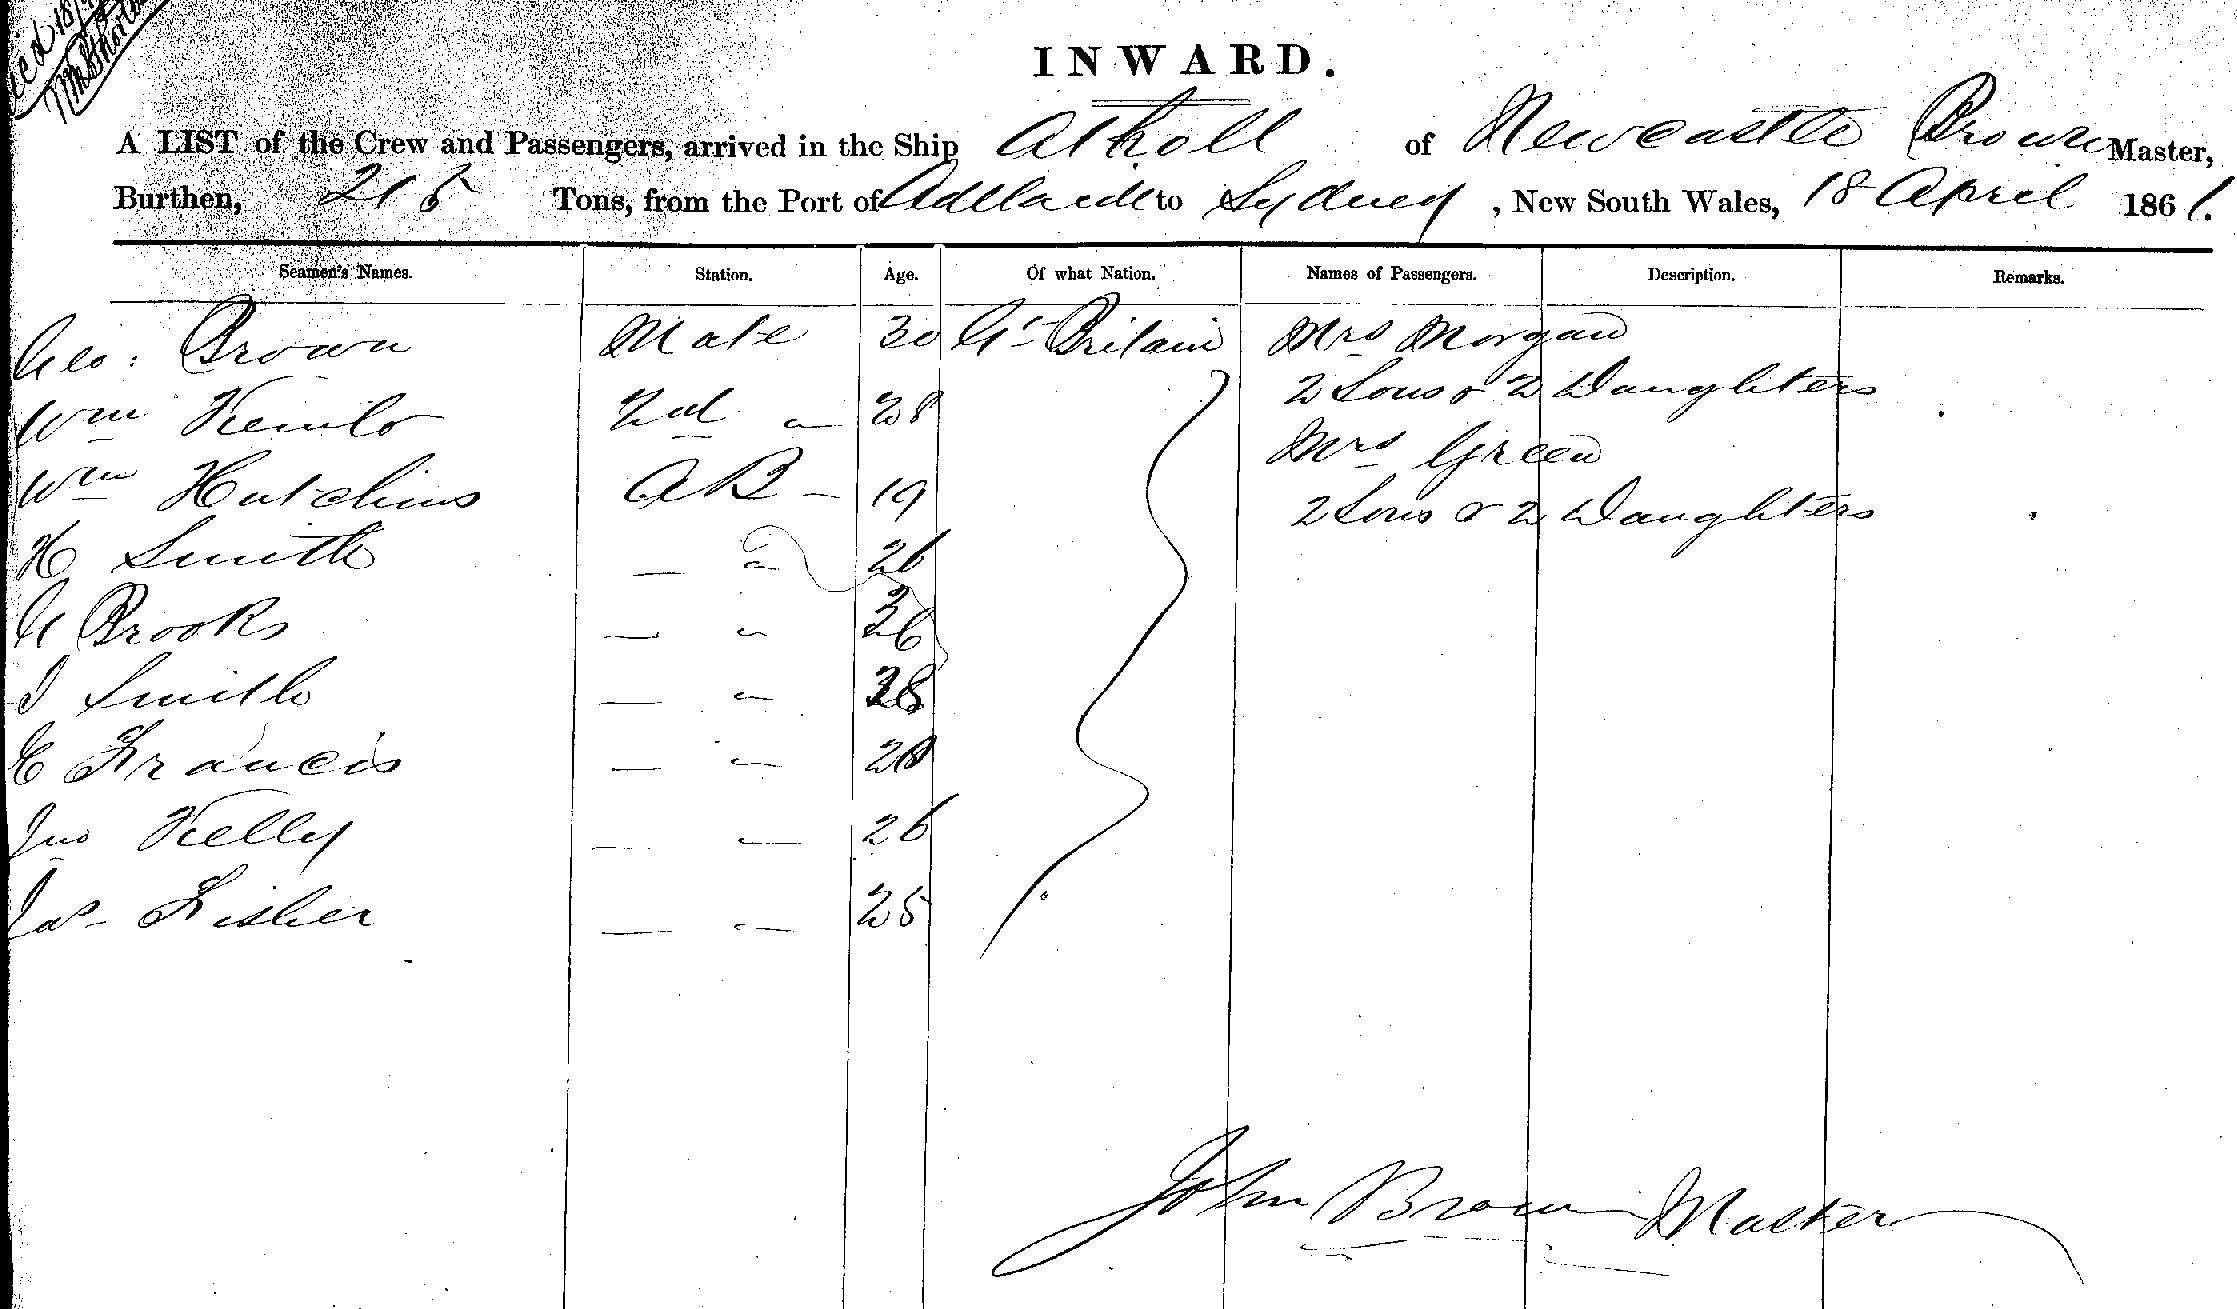 INWARD.
A LIST of the Crew and Passengers, arrived in the Ship Atholl of Newcastle Brown Master,
Burthen, 215 Tons, from the Port of Adelaide to Sydney, New South Wales, 18 April 1861.
Seamen's Names. Station. Age. Of what Nation. Names of Passengers. Description. Remarks.
Geo: Brown Mate 30 Gt Britain Mrs Morgan
2 Sons & 2 Daughters
Wm 2nd " 28
Mrs Green
Wm Hutchins AB - 19
2 Sons & 2 Daughters
H Smith — " 26
G Brooks — "
J Smith — "
C Francis — "
Jno Kelly — " 26
Jas Fisher — " 25
John Brown Master